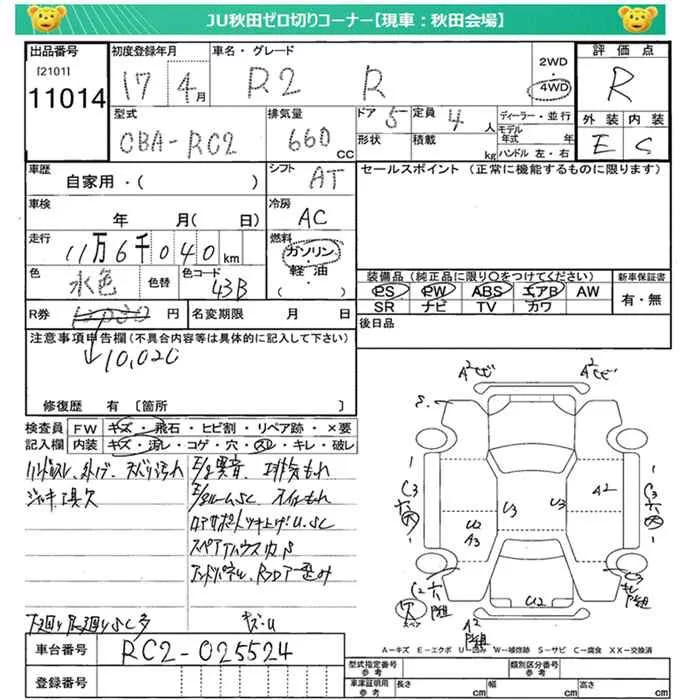 JU秋田ゼロ切りコーナー【現車：秋田会場】
出品番号
[2101]
11014
初度登録年月
17 4月
車名・グレード
R2 R
2WD
・
4WD
評価点
R
外装 内装
E C
型式
CBA-RC2
排気量
660 CC
ドア 5
形状
定員 4 人
積載 kg
ディーラー・並行
モデル年式 年
ハンドル 左・右
車歴
自家用・( )
シフト
AT
セールスポイント (正常に機能するものに限ります)
車検
年 月( 日)
冷房
AC
走行
11万6千040km
燃料
ガソリン
・
軽油・
( )
色
水色
色替
色コード
43B
装備品 (純正品に限り○をつけてください)
PS PW ABS エアB AW
SR ナビ TV カワ
新車保証書
有・無
R券 円
名変期限 月 日
後日品
注意事項申告欄(不具合内容等は具体的に記入して下さい)
10,020
修復歴 有 〔箇所 〕
検査員
記入欄
FW キズ・飛石・ヒビ割・リペア跡・×要
内装 キズ・汚レ・コゲ・穴・スレ・キレ・破レ
ハンドルスレ
ジャッキ工具欠
E/g異音、排気もれ
E/gルームSC、オイルもれ
ロアサポート突上げU、SC
下廻り足廻りSC多
キズ・U
A²
A²
C3
U3
U3
A2
C3
U2
A3
U2
A²
穴
スペア
A=キズ E=エクボ U=凹み W=補修跡 S=サビ C=腐食 XX=交換済
車台番号
RC2-025524
登録番号
型式指定番号
参考
類別区分番号
参考
車庫証明用
参考
長さ cm
幅 cm
高さ cm